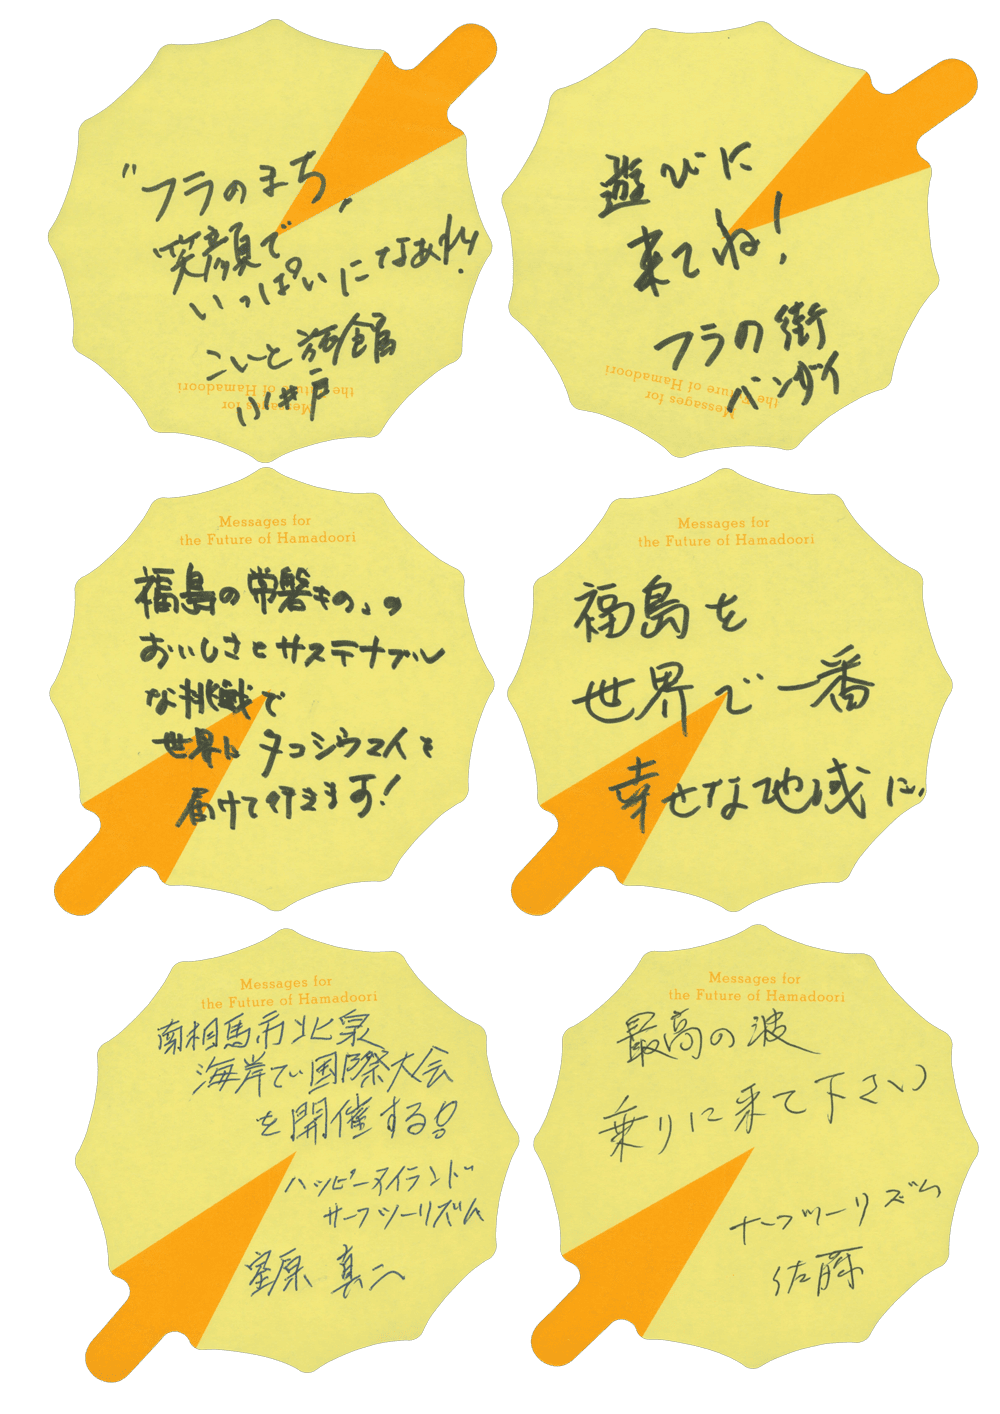 "フラのまち"
笑顔で
いっぱいになあれ!!
こいと旅館
小井戸
the Future of Hamadoori
Messages for
遊びに
来てね!
フラの街
バンダイ
the Future of Hamadoori
Messages for
Messages for
the Future of Hamadoori
福島の常磐もの」の
おいしさとサステナブル
な挑戦で
世界に
届けて行きます!
Messages for
the Future of Hamadoori
福島を
世界で一番
幸せな地域に.
Messages for
the Future of Hamadoori
南相馬市北泉
海岸で国際大会
を開催する!!
ハッピーアイランド
サーフツーリズム
室原 真二
Messages for
the Future of Hamadoori
最高の波
乗りに来て下さい
サーフツーリズム
佐藤